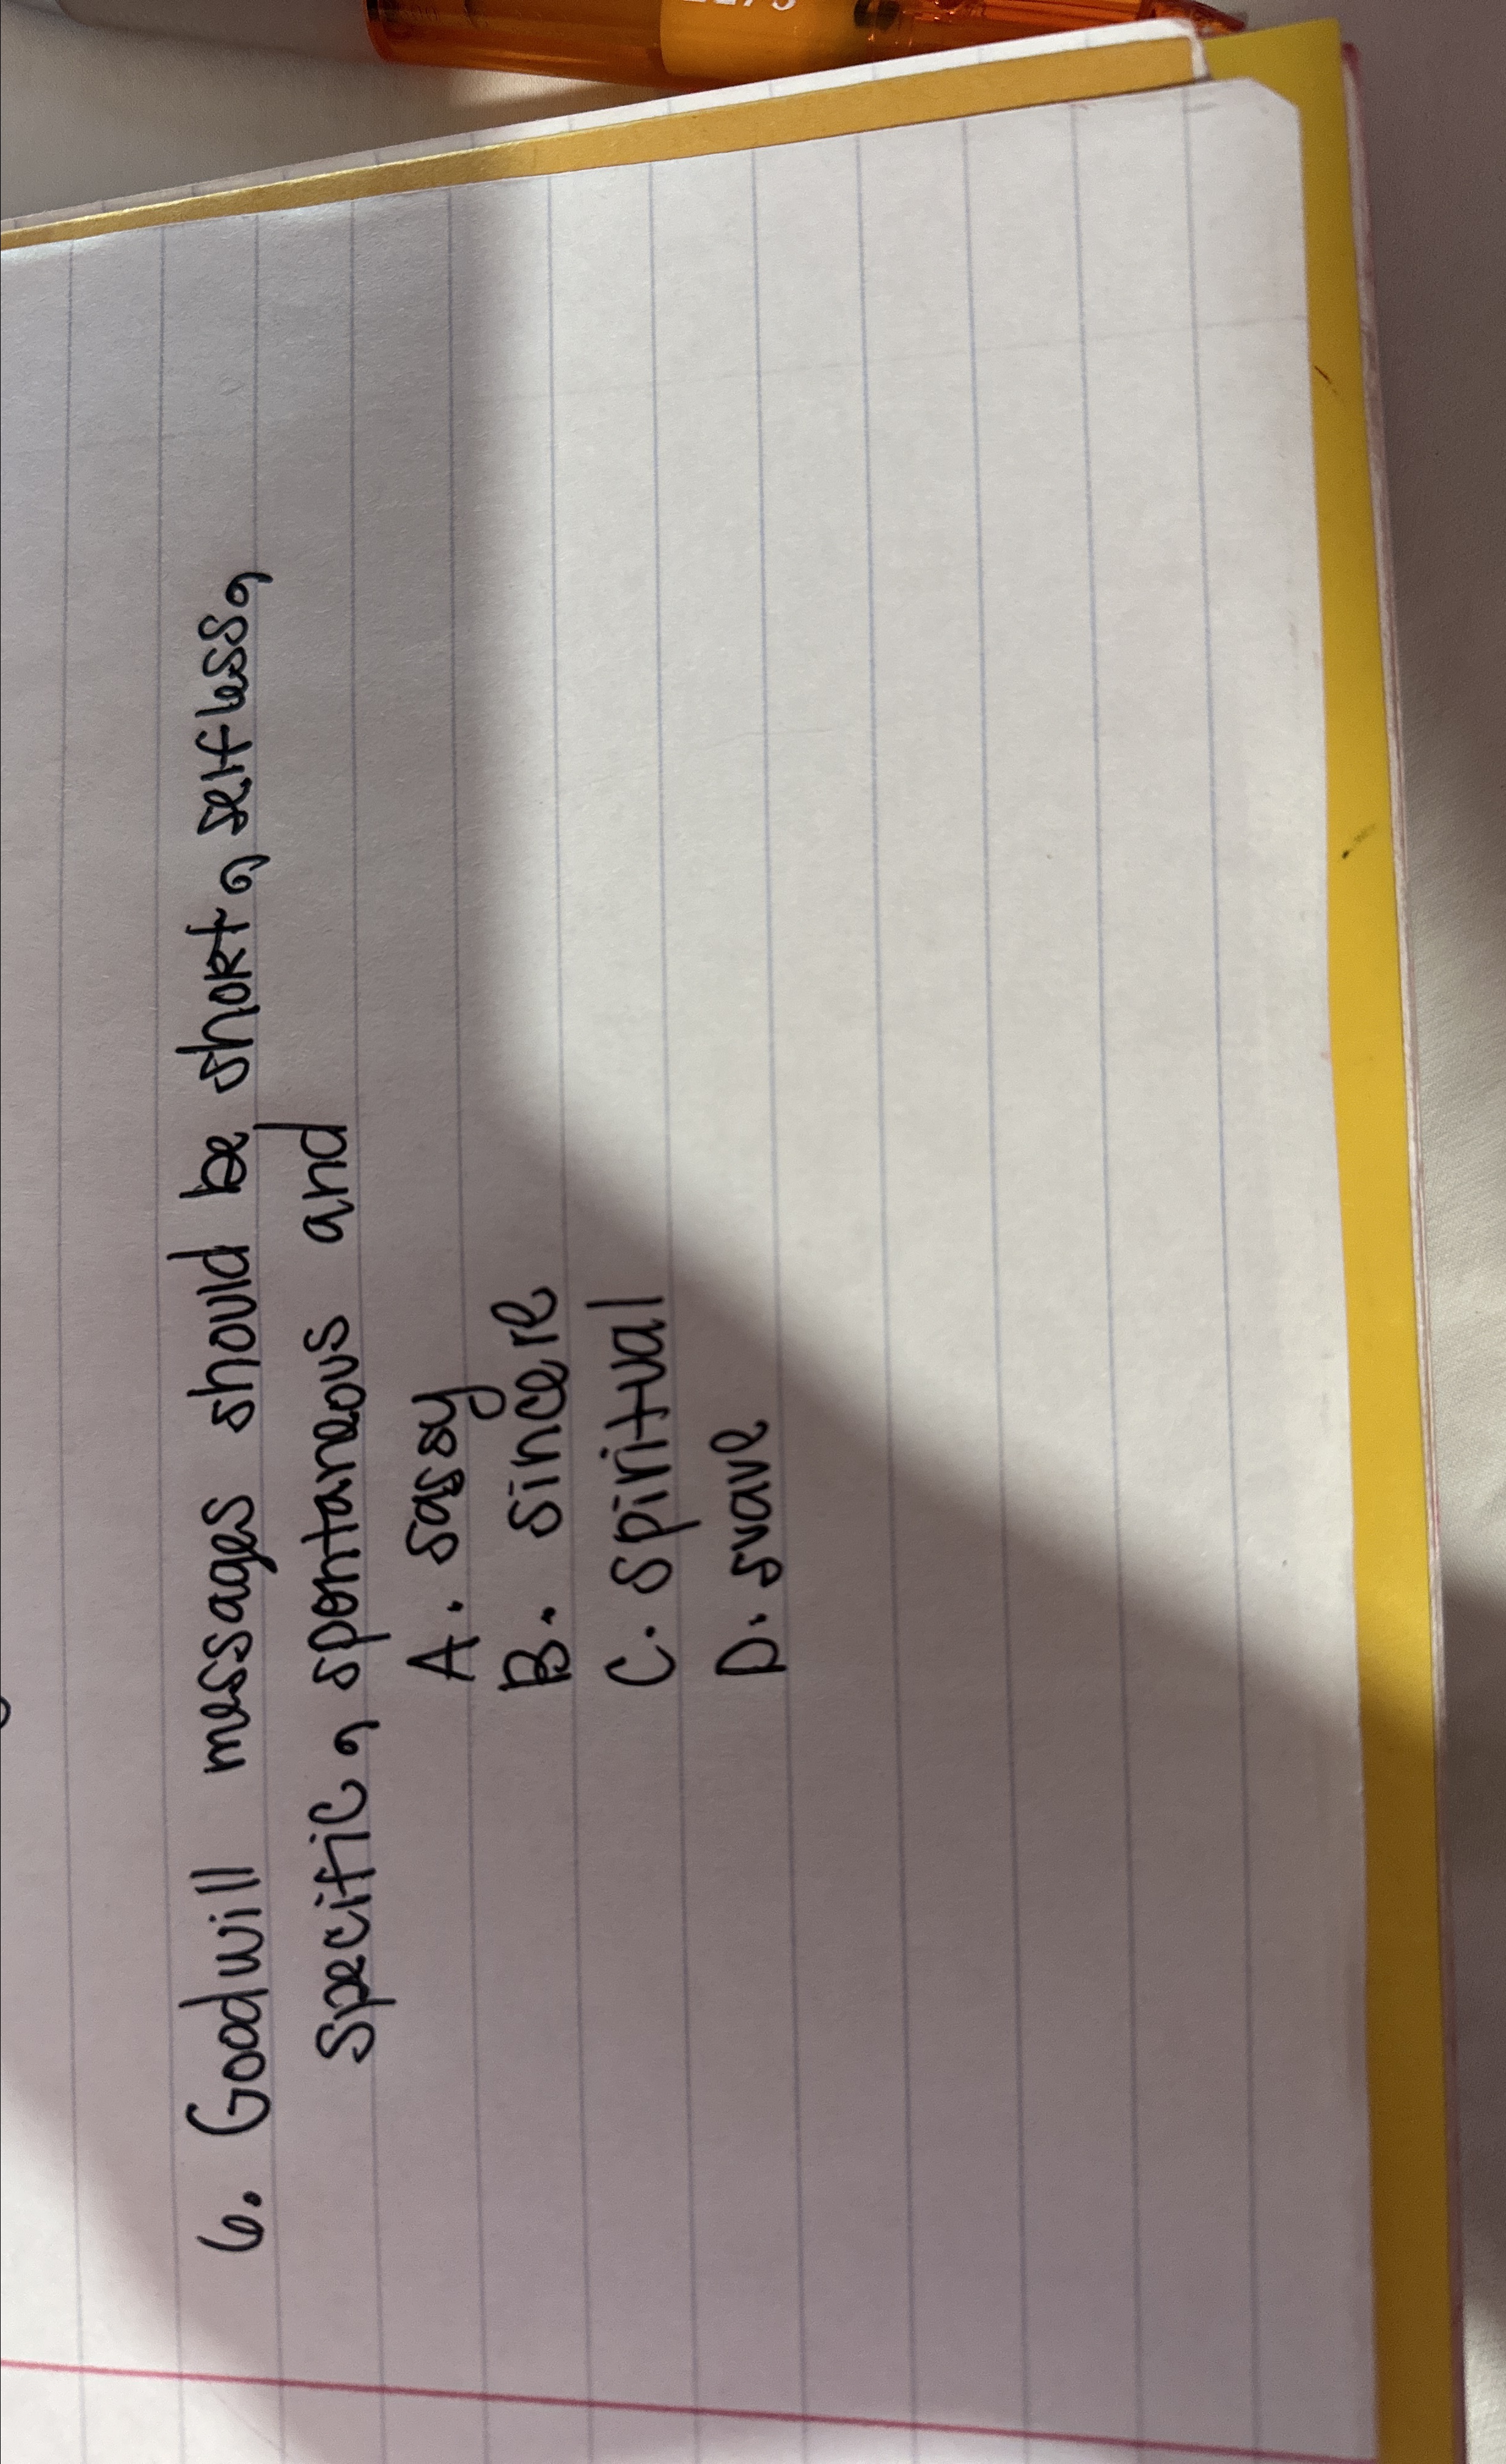 6. Goodwill messages should be short, selfless,
specific, spontaneous and
A. sassy
B. sincere
C. spiritual
D. suave